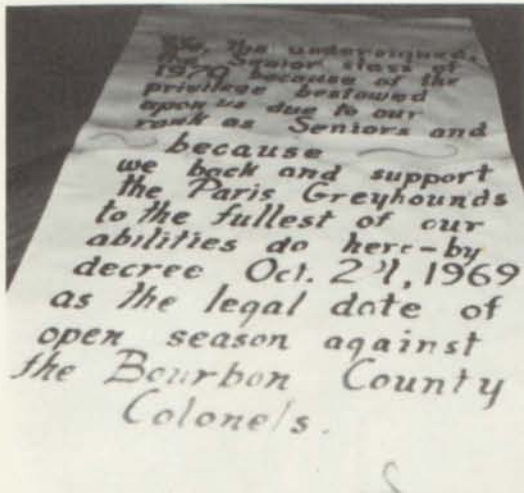 We, the undersigned,
the Senior class of
1970 because of the
privilege bestowed
upon us due to our
rank as Seniors and
because
we back and support
the Paris Greyhounds
to the fullest of our
abilities do here-by
decree Oct. 1969
as the legal date of
open season against
the Bourbon County
Colonels.